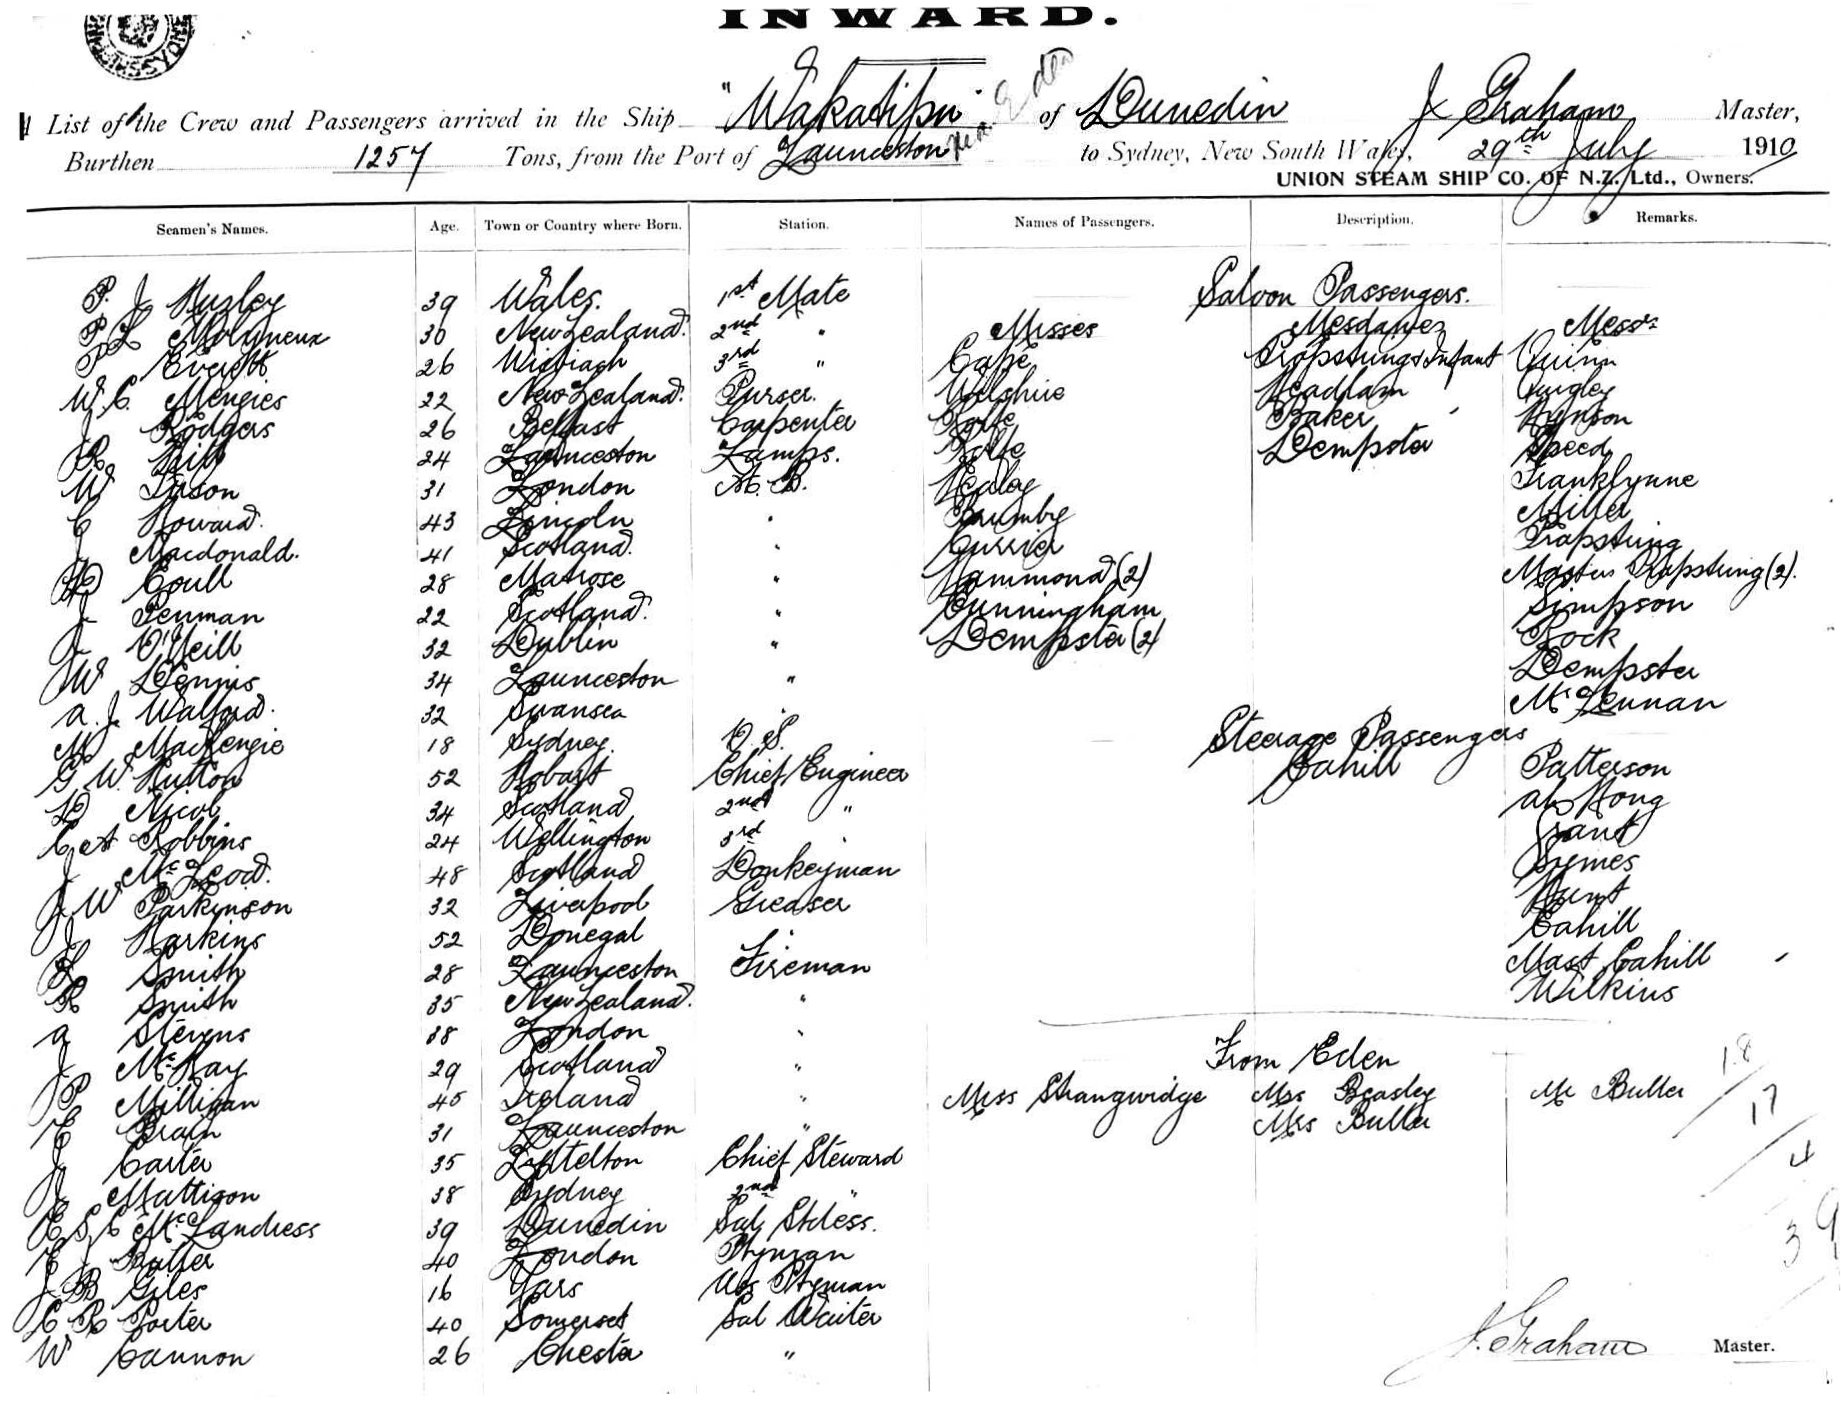 INWARD.
List of the Crew and Passengers arrived in the Ship "Wakatipu" via Eden of Dunedin J Graham Master,
Burthen 1257 Tons, from the Port of Launceston to Sydney, New South Wales, 29th July 1910
UNION STEAM SHIP CO. OF N.Z. Ltd., Owners.
Seamen's Names. Age. Town or Country where Born. Station. Names of Passengers. Description. Remarks.
Saloon Passengers.
P. J 39 Wales. 1st Mate
P L Molyneux 30 New Zealand. 2nd " Misses Mesdames Messrs
P Everett 26 Wisbiach 3rd " Cape Infant Quinn
W. C. Menzies 22 New Zealand. Purser. Wilshire Headlam Quigley
J Rodgers 26 Belfast Carpenter Baker Hynson
R Hill 24 Launceston Lamps. Dempster Speed
W Tyson 31 London A. B. Healey Franklynne
C Howard. 43 Lincoln " Miller
J Macdonald. 41 Scotland. " Currier
D Coull 28 Matrose " Hammond (2) Masters (2).
J Penman 22 Scotland. " Cunningham Simpson
J O'Neill 32 Dublin " Dempster (2) Rock
W Dennis 34 Launceston " Dempster
A. J. Walford. 32 Swansea " McLennan
M MacKenzie 18 Sydney. O. S. Steerage Passengers
G W. Hutton 52 Hobart Chief Engineer Cahill Patterson
D Nicol 34 Scotland 2nd " Ah Hong
C A Robbins 24 Wellington 3rd " Grant
J McLeod. 48 Scotland Donkeyman Symes
J W Parkinson 32 Liverpool Greaser Hunt
J Harkins 52 Donegal " Cahill
L Smith 28 Launceston Fireman Mast Cahill
R Smith 35 New Zealand. " Wilkins
A Stevens 38 London "
J McKay 29 Scotland " From Eden
P Milligan 45 Ireland " Miss Strangwidge Mrs Beasley Mr Butler
E Brain 31 Launceston " Mrs Butler
J Carter 35 Lyttelton Chief Steward
J Mattison 38 Sydney 2nd "
E S C McLandress 39 Dunedin Sal Stdess.
E J Butler 40 London Ptyman
J B Giles 16 Yars Ass Ptyman
C R Porter 40 Somerset Sal Waiter
W Cannon 26 Chester "
18
17
4
39
J. Graham Master.